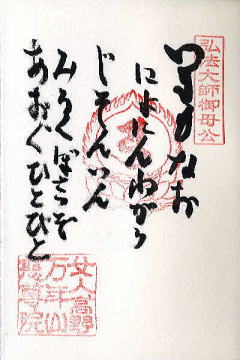 弘法大師御母公
なお
によにん
じそんいん
みろくぼさつを
あおぐひとびと
女人高野
万年山
慈尊院